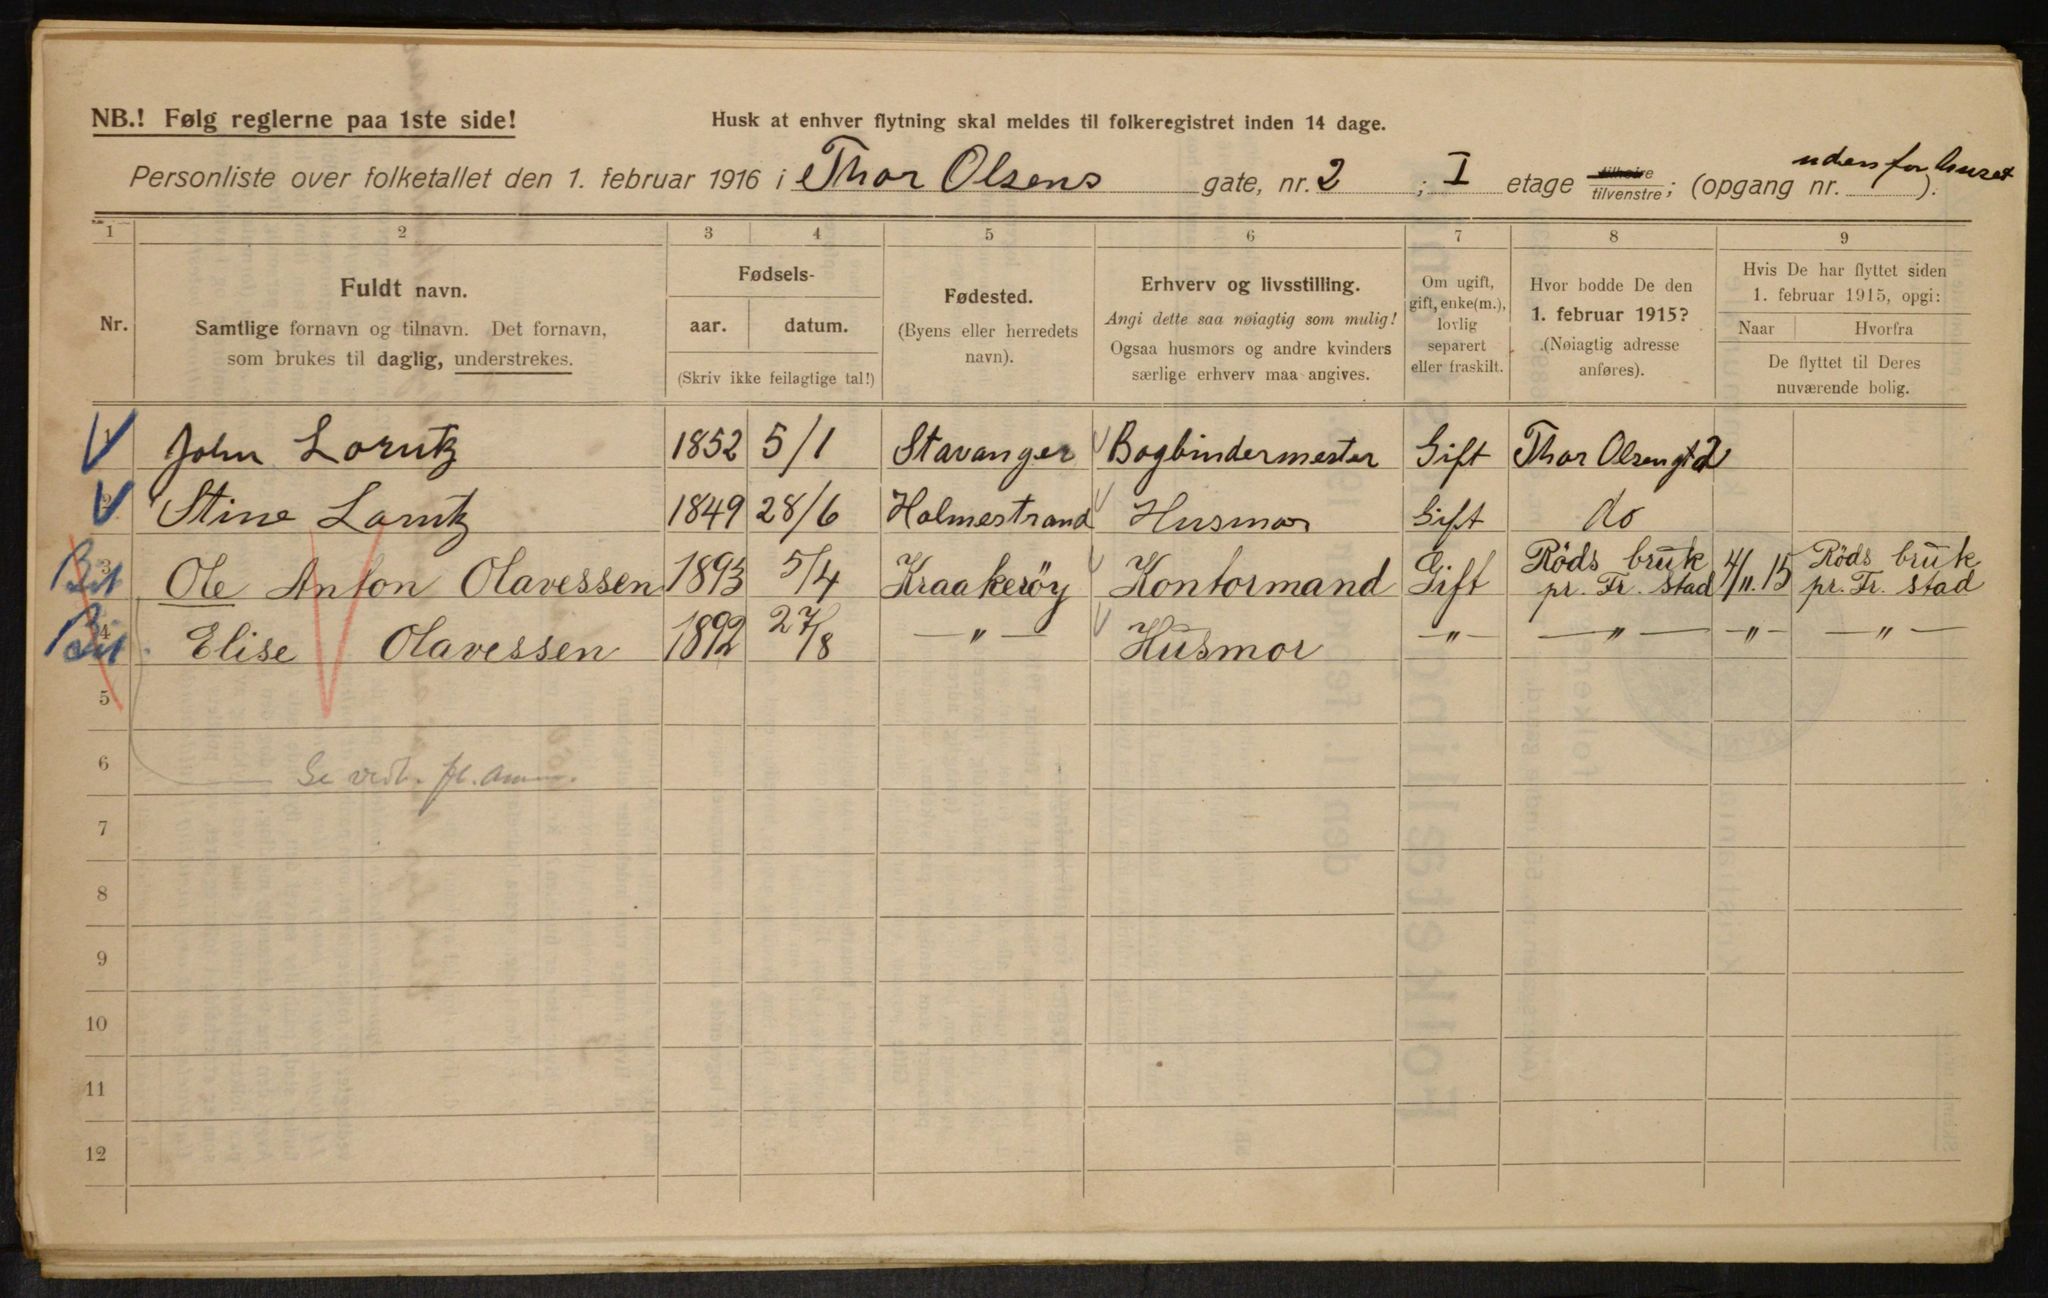 NB.! Følg reglerne paa 1ste side!
Husk at enhver flytning skal meldes til folkeregistret inden 14 dage.
Personliste over folketallet den 1. februar 1916 i Thor Olsens gate, nr. 2 ; I etage tilhøire tilvenstre; (opgang nr. ).
udenfor huset
1 2 3 4 5 6 7 8 9
Nr.
Fuldt navn.
Samtlige fornavn og tilnavn. Det fornavn,
som brukes til daglig, understrekes.
Fødsels-
aar. datum.
(Skriv ikke feilagtige tal!)
Fødested.
(Byens eller herredets
navn).
Erhverv og livsstilling.
Angi dette saa nøiagtig som mulig!
Ogsaa husmors og andre kvinders
særlige erhverv maa angives.
Om ugift,
gift, enke(m.),
lovlig
separert
eller fraskilt.
Hvor bodde De den
1. februar 1915?
(Nøiagtig adresse
anføres).
Hvis De har flyttet siden
1. februar 1915, opgi:
Naar Hvorfra
De flyttet til Deres
nuværende bolig.
1 John Lorntz 1852 5/1 Stavanger Bogbindermester Gift Thor Olsengt 2
2 Stine Lorntz 1849 28/6 Holmestrand Husmor Gift do
3 Ole Anton Olavessen 1893 5/4 Kraakerøy Kontormand Gift Röds bruk pr. Fr. stad 4/11.15 Röds bruk pr. Fr. stad
4 Elise Olavessen 1892 27/8 —"— Husmor —"— —"— —"— —"—
5
6
Se vedl.
7
8
9
10
11
12